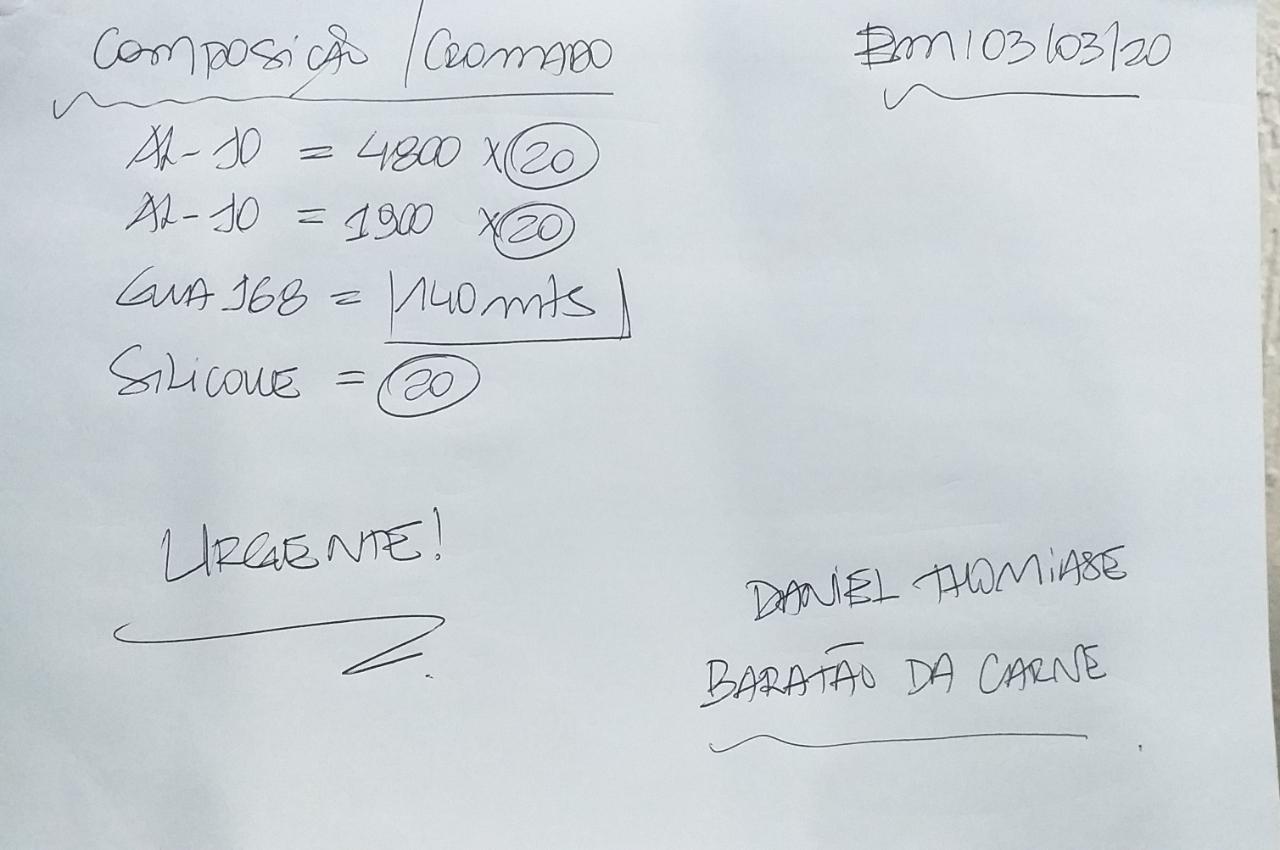 Composição / CROMADO
Em 03/03/20
AL-10 = 4800 x 20
AL-10 = 1900 x 20
GUA 168 = 140 mts
SILICONE = 20
URGENTE!
DANIEL THOMIASE
BARATÃO DA CARNE